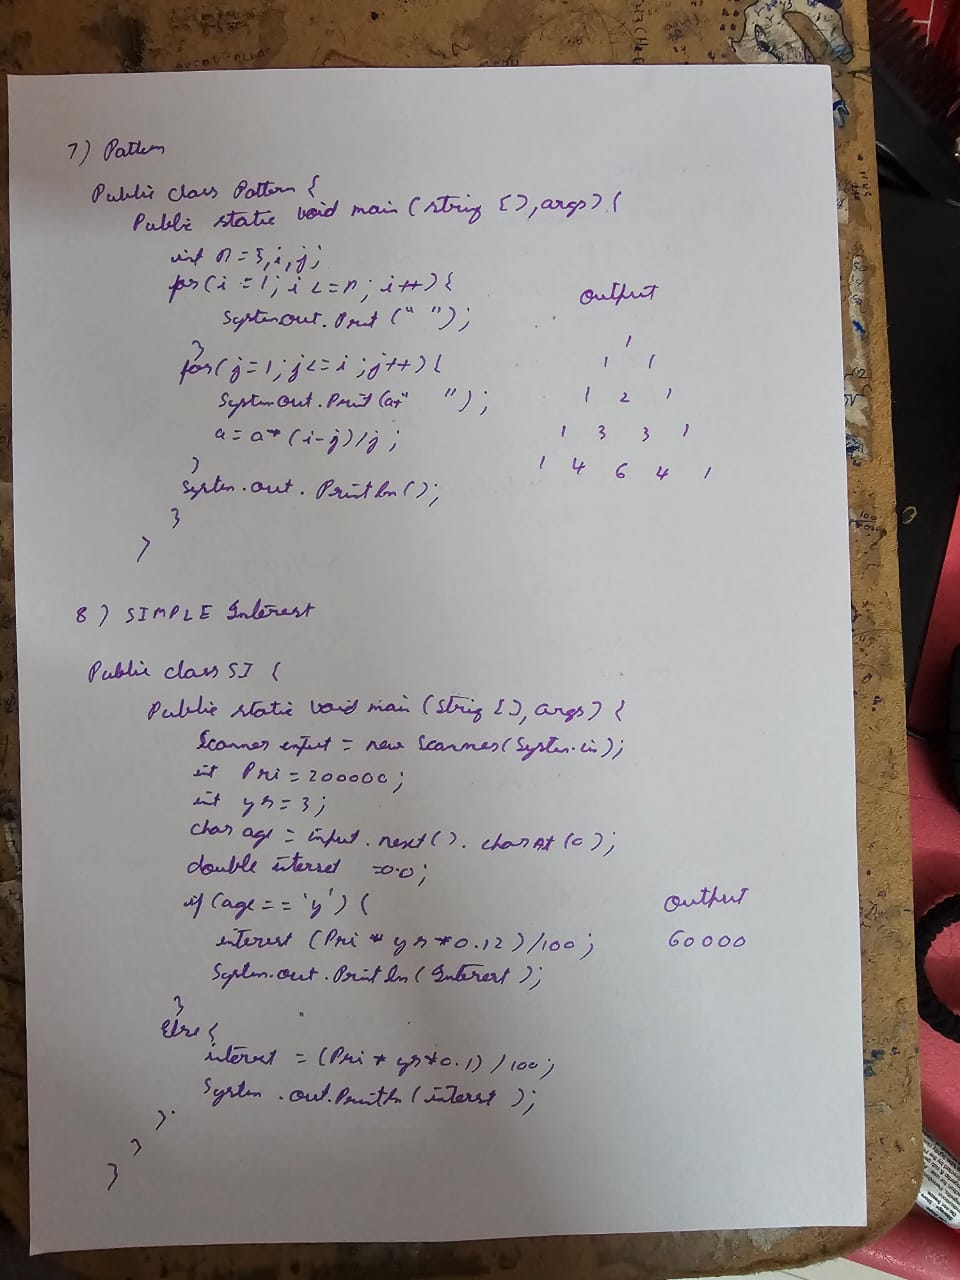 7) Pattern
Public class Pattern {
Public static void main (string [], args) {
int n=5, i, j;
for (i = 1; i <= n; i++) {
output
System.out. Print (" ");
}
1
for (j = 1; j <= i ; j++) {
1 1
System.out. Print (a+" ");
1 2 1
a = a * (i-j) / j ;
1 3 3 1
}
1 4 6 4 1
System.out. Println ();
}
}
8) SIMPLE Interest
Public class SI {
Public static void main (String [], args) {
Scanner input = new Scanner (System.in);
int Pri = 200000;
int yr = 3;
char age = input. next(). charAt (0);
double interset =0.0;
if (age == 'y') {
output
interest (Pri * yr * 0.12) /100 ;
60000
System.out. Println (Interest );
}
Else {
interest = (Pri * yr * 0.1) / 100;
System .out. Println (interst );
}.
}
}